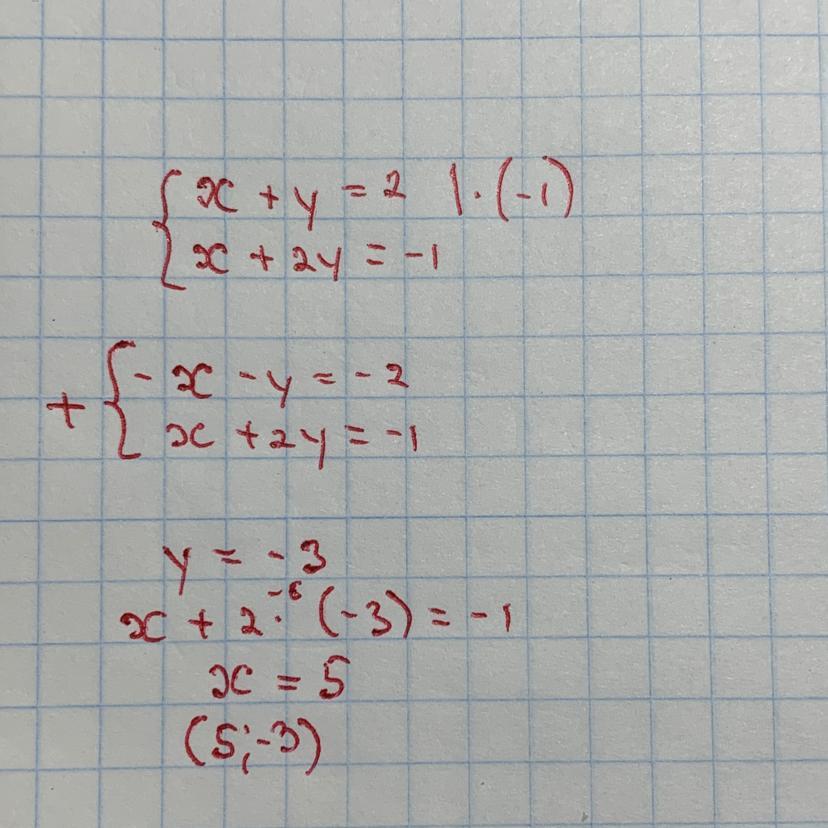 { x + y = 2 | · (-1)
x + 2y = -1
+ { - x - y = -2
x + 2y = -1
y = -3
-6
x + 2 · (-3) = -1
x = 5
(5; -3)